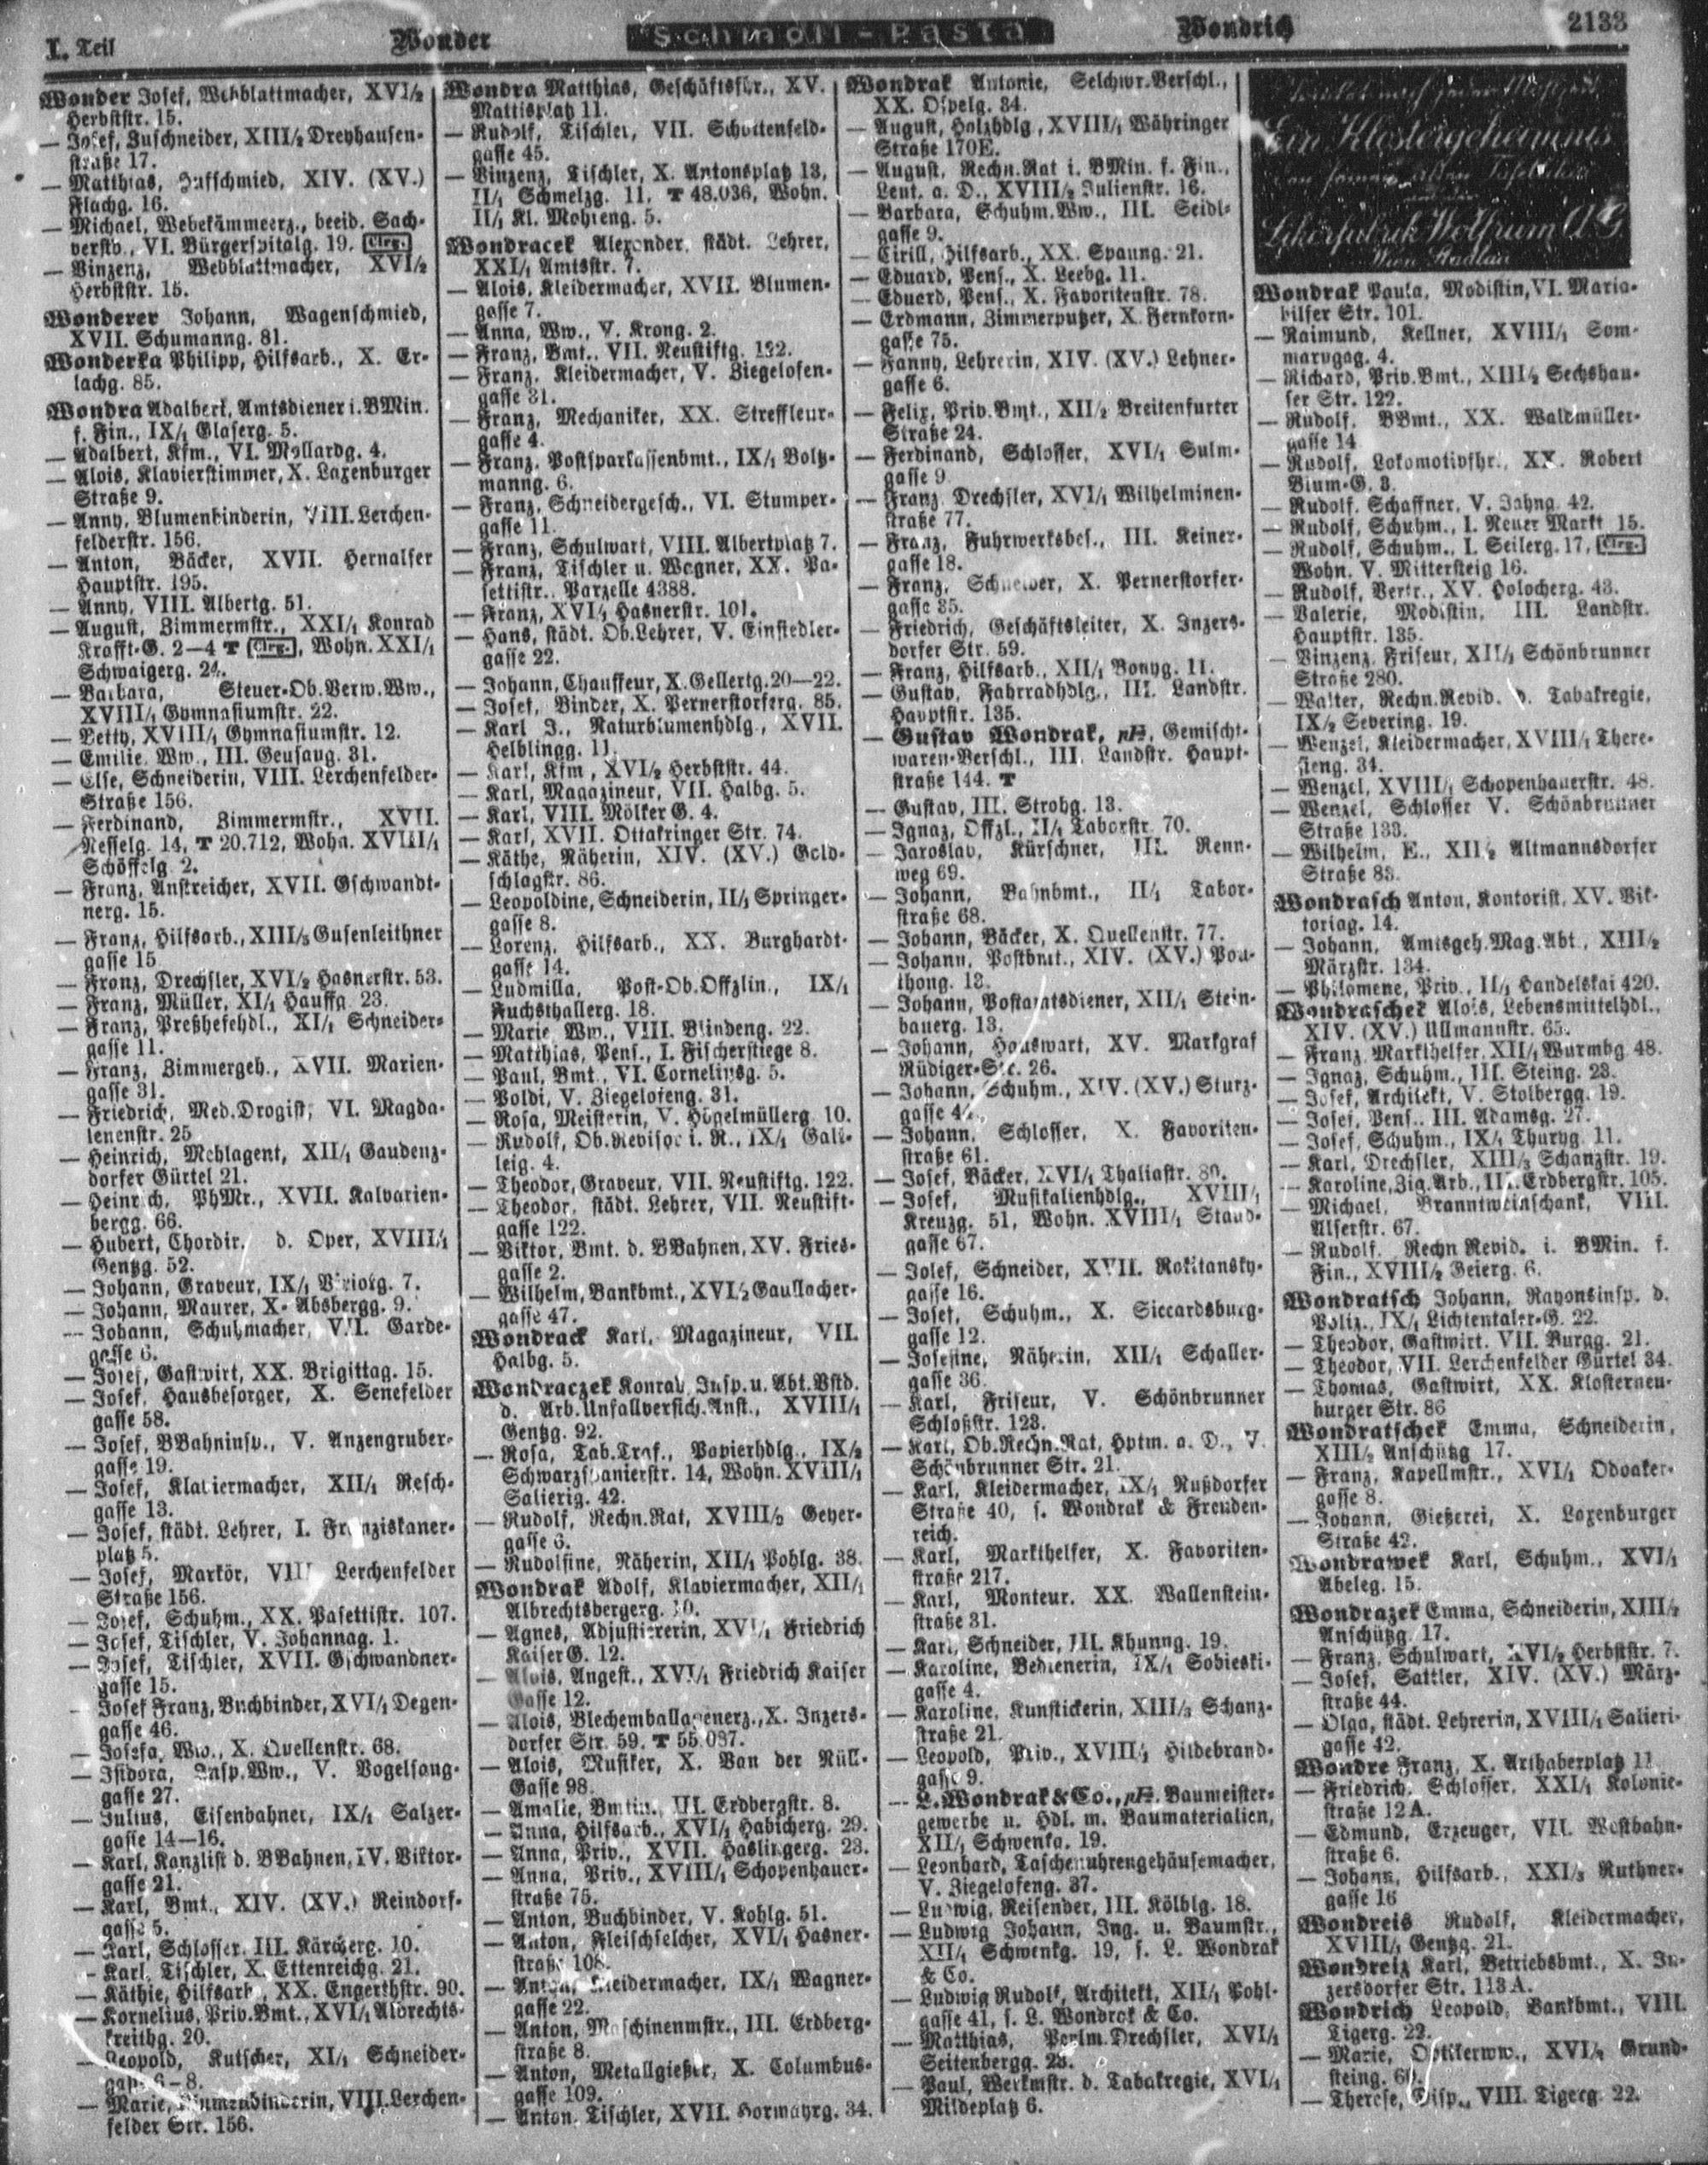 I. Teil
Wonder
Schmoll-Pasta
Wondrich
2133
Wonder Josef, Webblattmacher, XVI/2
Herbststr. 15.
— Josef, Zuschneider, XIII/2 Dreyhausen-
straße 17.
— Matthias, Hufschmied, XIV. (XV.)
Flachg. 16.
— Michael, Webekämmeerz., beeid. Sach-
verstd., VI. Bürgerspitalg. 19. Clrg.
— Vinzenz, Webblattmacher, XVI/2
Herbststr. 15.
Wonderer Johann, Wagenschmied,
XVII. Schumanng. 81.
Wonderka Philipp, Hilfsarb., X. Er-
lachg. 85.
Wondra Adalbert, Amtsdiener i. BMin.
f. Fin., IX/1 Glaserg. 5.
— Adalbert, Kfm., VI. Mollardg. 4.
— Alois, Klavierstimmer, X. Laxenburger
Straße 9.
— Anny, Blumenbinderin, VIII. Lerchen-
felderstr. 156.
— Anton, Bäcker, XVII. Hernalser
Hauptstr. 195.
— Anny, VIII. Albertg. 51.
— August, Zimmermstr., XXI/1 Konrad
Krafft-G. 2—4 T Clrg., Wohn. XXI/1
Schwaigerg. 24.
— Barbara, Steuer-Ob.Verw.Ww.,
XVIII/1 Gymnasiumstr. 22.
— Betty, XVIII/1 Gymnasiumstr. 12.
— Emilie, Ww., III. Geusaug. 31.
— Else, Schneiderin, VIII. Lerchenfelder-
Straße 156.
— Ferdinand, Zimmermstr., XVII.
Nesselg. 14, T 20.712, Wohn. XVIII/1
Schöffelg. 2.
— Franz, Anstreicher, XVII. Gschwandt-
nerg. 15.
— Franz, Hilfsarb., XIII/5 Gusenleithner
gasse 15
— Franz, Drechsler, XVI/2 Hasnerstr. 53.
— Franz, Müller, XI/1 Hauffg. 23.
— Franz, Preßhefehdl., XI/1 Schneider-
gasse 11.
— Franz, Zimmergeh., XVII. Marien-
gasse 31.
— Friedrich, Med.Drogist, VI. Magda-
lenenstr. 25
— Heinrich, Mehlagent, XII/1 Gaudenz-
dorfer Gürtel 21.
— Heinrich, PhMr., XVII. Kalvarien-
bergg. 66.
— Hubert, Chordir. d. Oper, XVIII/1
Gentzg. 52.
— Johann, Graveur, IX/1 7.
— Johann, Maurer, X. Absbergg. 9.
— Johann, Schuhmacher, VII. Garde-
gasse 6.
— Josef, Gastwirt, XX. Brigittag. 15.
— Josef, Hausbesorger, X. Senefelder
gasse 58.
— Josef, BBahninsp., V. Anzengruber-
gasse 19.
— Josef, Klaviermacher, XII/1 Resch-
gasse 13.
— Josef, städt. Lehrer, I. Franziskaner-
platz 5.
— Josef, Markör, VIII Lerchenfelder
Straße 156.
— Josef, Schuhm., XX. Pasettistr. 107.
— Josef, Tischler, V. Johannag. 1.
— Josef, Tischler, XVII. Gschwandner-
gasse 15.
Josef Franz, Buchbinder, XVI/1 Degen-
gasse 46.
— Josefa, Ww., X. Quellenstr. 68.
— Isidora, Insp.Ww., V. Vogelsang-
gasse 27.
— Julius, Eisenbahner, IX/1 Salzer-
gasse 14—16.
— Karl, Kanzlist d. BBahnen, IV. Viktor-
gasse 21.
— Karl, Bmt., XIV. (XV.) Reindorf-
gasse 5.
— Karl, Schlosser, III. Kärcherg. 10.
— Karl, Tischler, X. Ettenreichg. 21.
— Käthie, Hilfsarb., XX. Engerthstr. 90.
— Kornelius, Priv.Bmt., XVI/1 Albrechts-
kreithg. 20.
— Leopold, Kutscher, XI/1 Schneider-
gasse 6—8.
— Marie, Blumenbinderin, VIII. Lerchen-
felder Str. 156.
Wondra Matthias, Geschäftsfhr., XV.
Mattisplatz 11.
— Rudolf, Tischler, VII. Schottenfeld-
gasse 45.
— Vinzenz, Tischler, X. Antonsplatz 13,
II/1 Schmelzg. 11, T 48.036, Wohn.
II/1 Kl. Mohreng. 5.
Wondracek Alexander, städt. Lehrer,
XXI/1 Amtsstr. 7.
— Alois, Kleidermacher, XVII. Blumen-
gasse 7.
— Anna, Ww., V. Krong. 2.
— Franz, Bmt., VII. Neustiftg. 122.
— Franz, Kleidermacher, V. Ziegelofen-
gasse 31.
— Franz, Mechaniker, XX. Streffleur-
gasse 4.
— Franz, Postsparkassenbmt., IX/1 Boltz-
manng. 6.
— Franz, Schneidergesch., VI. Stumper-
gasse 11.
— Franz, Schulwart, VIII. Albertplatz 7.
— Franz, Tischler u. Wagner, XX. Pa-
settistr. Parzelle 4388.
— Franz, XVI/1 Hasnerstr. 101.
— Hans, städt. Ob.Lehrer, V. Einsiedler-
gasse 22.
— Johann, Chauffeur, X. Gellertg. 20—22.
— Josef, Binder, X. Pernerstorferg. 85.
— Karl J., Naturblumenhdlg., XVII.
Helblingg. 11.
— Karl, Kfm., XVI/2 Herbststr. 44.
— Karl, Magazineur, VII. Halbg. 5.
— Karl, VIII. Mölker G. 4.
— Karl, XVII. Ottakringer Str. 74.
— Käthe, Näherin, XIV. (XV.) Gold-
schlagstr. 86.
— Leopoldine, Schneiderin, II/1 Springer-
gasse 8.
— Lorenz, Hilfsarb., XX. Burghardt-
gasse 14.
— Ludmilla, Post-Ob.Offzlin., IX/1
Fuchsthallerg. 18.
— Marie Ww., VIII. Blindeng. 22.
— Matthias, Pens., I. Fischerstiege 8.
— Paul, Bmt., VI. Corneliusg. 5.
— Poldi, V. Ziegelofeng. 31.
— Rosa, Meisterin, V. Högelmüllerg. 10.
— Rudolf, Ob.Revisor i. R., IX/1 Gall-
leig. 4.
— Theodor, Graveur, VII. Neustiftg. 122.
— Theodor, städt. Lehrer, VII. Neustift-
gasse 122.
— Viktor, Bmt. d. BBahnen, XV. Fries-
gasse 2.
— Wilhelm, Bankbmt., XVI/2 Gaullacher-
gasse 47.
Wondrack Karl, Magazineur, VII.
Halbg. 5.
Wondraczek Konrad, Insp. u. Abt.Vstd.
d. Arb.Unfallversich.Anst., XVIII/1
Gentzg. 92.
— Rosa, Tab.Traf., Papierhdlg., IX/2
Schwarzspanierstr. 14, Wohn. XVIII/1
Salierig. 42.
— Rudolf, Rechn.Rat, XVIII/2 Geyer-
gasse 6.
— Rudolfine, Näherin, XII/1 Pohlg. 38.
Wondrak Adolf, Klaviermacher, XII/1
Albrechtsbergerg. 10.
— Agnes, Adjustiererin, XVI/1 Friedrich
Kaiser G. 12.
— Alois, Angest., XVI/1 Friedrich Kaiser
Gasse 12.
— Alois, Blechemballagenerz., X. Inzers-
dorfer Str. 59. T 55.087.
— Alois, Musiker, X. Van der Nüll-
Gasse 98.
— Amalie, Bmtin., III. Erdbergstr. 8.
— Anna, Hilfsarb., XVI/1 Habicherg. 29.
— Anna, Priv., XVII. Haslingerg. 23.
— Anna, Priv., XVIII/1 Schopenhauer-
straße 75.
— Anton, Buchbinder, V. Kohlg. 51.
— Anton, Fleischselcher, XVI/1 Hasner-
straße 108.
— Anton, Kleidermacher, IX/1 Wagner-
gasse 22.
— Anton, Maschinenmstr., III. Erdberg-
straße 8.
— Anton, Metallgießer, X. Columbus-
gasse 109.
— Anton, Tischler, XVII. Hormayrg. 34.
Wondrak Antonie, Selchwr.Verschl.,
XX. Ospelg. 34.
— August, Holzhdlg., XVIII/1 Währinger
Straße 170E.
— August, Rechn.Rat i. BMin. f. Fin.,
Leut. a. D., XVIII/2 Julienstr. 16.
— Barbara, Schuhm.Ww., III. Seidl-
gasse 9.
— Cirill, Hilfsarb., XX. Spaung. 21.
— Eduard, Pens., X. Leebg. 11.
— Eduard, Pens., X. Favoritenstr. 78.
— Erdmann, Zimmerputzer, X. Fernkorn-
gasse 75.
— Fanny, Lehrerin, XIV. (XV.) Lehner-
gasse 6.
— Felix, Priv.Bmt., XII/2 Breitenfurter
Straße 24.
— Ferdinand, Schlosser, XVI/1 Sulm-
gasse 9
— Franz, Drechsler, XVI/1 Wilhelminen-
straße 77.
— Franz, Fuhrwerksbes., III. Keiner-
gasse 18.
— Franz, Schneider, X. Pernerstorfer-
gasse 35.
— Friedrich, Geschäftsleiter, X. Inzers-
dorfer Str. 59.
— Franz, Hilfsarb., XII/1 Bonyg. 11.
— Gustav, Fahrradhdlg., III. Landstr.
Hauptstr. 135.
— Gustav Wondrak, pH., Gemischt-
waren-Verschl., III. Landstr. Haupt-
straße 144. T
— Gustav, III. Strohg. 13.
— Ignaz, Offzl., II/1 Taborstr. 70.
— Jaroslav, Kürschner, III. Renn-
weg 69.
— Johann, Bahnbmt., II/1 Tabor-
straße 68.
— Johann, Bäcker, X. Quellenstr. 77.
— Johann, Postbmt., XIV. (XV.) Pou-
thong. 13.
— Johann, Postamtsdiener, XII/1 Stein-
bauerg. 13.
— Johann, Hauswart, XV. Markgraf
Rüdiger-Str. 26.
— Johann, Schuhm., XIV. (XV.) Sturz-
gasse
— Johann, Schlosser, X. Favoriten-
straße 61.
— Josef, Bäcker, XVI/1 Thaliastr. 80.
— Josef, Musikalienhdlg., XVIII/1
Kreuzg. 51, Wohn. XVIII/1 Staud-
gasse 67.
— Josef, Schneider, XVII. Rokitansky-
gasse 16.
— Josef, Schuhm., X. Siccardsburg-
gasse 12.
— Josefine, Näherin, XII/1 Schaller-
gasse 36.
— Karl, Friseur, V. Schönbrunner
Schloßstr. 123.
— Karl, Ob.Rechn.Rat, Hptm. a. D., V.
Schönbrunner Str. 21.
— Karl, Kleidermacher, IX/1 Nußdorfer
Straße 40, s. Wondrak & Freuden-
reich.
— Karl, Markthelfer, X. Favoriten-
straße 217.
— Karl, Monteur, XX. Wallenstein-
straße 31.
— Karl, Schneider, III. Khunng. 19.
— Karoline, Bedienerin, IX/1 Sobieski-
gasse 4.
— Karoline, Kunstickerin, XIII/3 Schanz-
straße 21.
— Leopold, Priv., XVIII/1 Hildebrand-
gasse 9.
— L. Wondrak & Co., pH. Baumeister-
gewerbe u. Hdl. m. Baumaterialien,
XII/1 Schwenkg. 19.
— Leonhard, Taschenuhrengehäusemacher,
V. Ziegelofeng. 37.
— Ludwig, Reisender, III. Kölblg. 18.
— Ludwig Johann, Ing. u. Baumstr.,
XII/1 Schwenkg. 19, s. L. Wondrak
& Co.
— Ludwig Rudolf, Architekt, XII/1 Pohl-
gasse 41, s. L. Wondrak & Co.
— Matthias, Perlm.Drechsler, XVI/1
Seitenbergg. 23.
— Paul, Werkmstr. d. Tabakregie, XVI/1
Mildeplatz 6.
"Ein Klostergeheimnis"
Likörfabrik Wolfrum A.G.
Wien Stadlau
Wondrak Paula, Modistin, VI. Maria-
hilfer Str. 101.
— Raimund, Kellner, XVIII/1 Som-
marugag. 4.
— Richard, Priv.Bmt., XIII/2 Sechshau-
ser Str. 122.
— Rudolf, BBmt., XX. Waldmüller-
gasse 14
— Rudolf, Lokomotivfhr., XX. Robert
Blum-G. 3.
— Rudolf, Schaffner, V. Jahng. 42.
— Rudolf, Schuhm., I. Neuer Markt 15.
— Rudolf, Schuhm., I. Seilerg. 17, Clrg.
Wohn. V. Mittersteig 16.
— Rudolf, Vertr., XV. Holocherg. 43.
— Valerie, Modistin, III. Landstr.
Hauptstr. 135.
— Vinzenz, Friseur, XII/1 Schönbrunner
Straße 280.
— Walter, Rechn.Revid. d. Tabakregie,
IX/2 Severing. 19.
— Wenzel, Kleidermacher, XVIII/1 There-
sieng. 34.
— Wenzel, XVIII/1 Schopenhauerstr. 48.
— Wenzel, Schlosser V. Schönbrunner
Straße 133.
— Wilhelm, E., XII/2 Altmannsdorfer
Straße 83.
Wondrasch Anton, Kontorist, XV. Vik-
toriag. 14.
— Johann, Amtsgeh.Mag.Abt., XIII/2
Märzstr. 134.
— Philomene, Priv., II/1 Handelskai 420.
Wondraschek Alois, Lebensmittelhdl.,
XIV. (XV.) Ullmannstr. 65.
— Franz, Markthelfer, XII/1 Wurmbg. 48.
— Ignaz, Schuhm., III. Steing. 23.
— Josef, Architekt, V. Stolbergg. 19.
— Josef, Pens., III. Adamsg. 27.
— Josef, Schuhm., IX/1 Thuryg. 11.
— Karl, Drechsler, XIII/3 Schanzstr. 19.
— Karoline, Zig.Arb., III. Erdbergstr. 105.
— Michael, Branntweinschank, VIII.
Alserstr. 67.
— Rudolf, Rechn.Revid. i. BMin. f.
Fin., XVIII/2 Geierg. 6.
Wondratsch Johann, Rayonsinsp. d.
Poliz., IX/1 Lichtentaler-G. 22.
— Theodor, Gastwirt, VII. Burgg. 21.
— Theodor, VII. Lerchenfelder Gürtel 34.
— Thomas, Gastwirt, XX. Klosterneu-
burger Str. 86
Wondratschek Emma, Schneiderin,
XIII/2 Anschützg 17.
— Franz, Kapellmstr., XVI/1 Odoaker-
gasse 8.
— Johann, Gießerei, X. Laxenburger
Straße 42.
Wondrawek Karl, Schuhm., XVI/1
Abeleg. 15.
Wondrazek Emma, Schneiderin, XIII/2
Anschützg. 17.
— Franz, Schulwart, XVI/2 Herbststr. 7.
— Josef, Sattler, XIV. (XV.) März-
straße 44.
— Olga, städt. Lehrerin, XVIII/1 Salieri-
gasse 42.
Wondre Franz, X. Arthaberplatz 11
— Friedrich, Schlosser, XXI/1 Kolonie-
straße 12 A.
— Edmund, Erzeuger, VII. Westbahn-
straße 6.
— Johann, Hilfsarb., XXI/3 Ruthner-
gasse 16
Wondreis Rudolf, Kleidermacher,
XVIII/1 Gentzg. 21.
Wondreiz Karl, Betriebsbmt., X. In-
zersdorfer Str. 113 A.
Wondrich Leopold, Bankbmt., VIII.
Tigerg. 22.
— Marie, Optikerww., XVI/2 Grund-
steing.
— Therese, Disp., VIII. Tigerg. 22.